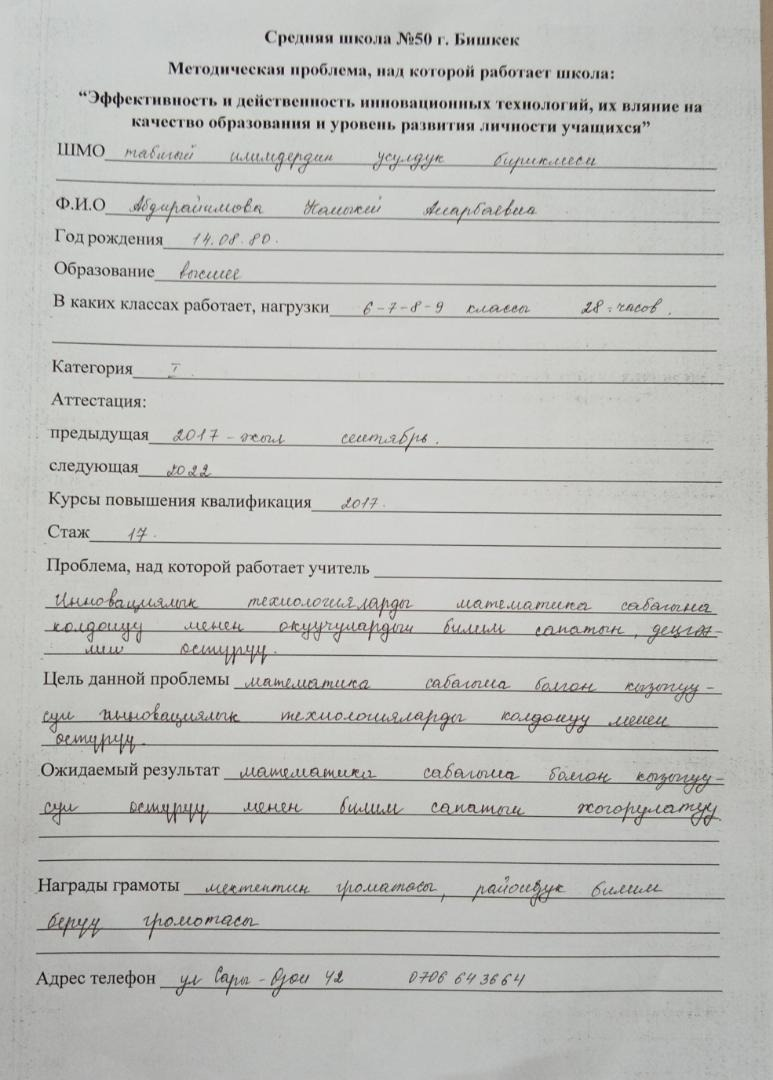 Средняя школа №50 г. Бишкек
Методическая проблема, над которой работает школа:
“Эффективность и действенность инновационных технологий, их вляние на
качество образования и уровень развития личности учащихся”
ШМО табигый илимдердин усулдук бирикмеси
Ф.И.О Абдирайимова Анарбаевна
Год рождения 14.08.80.
Образование высшее
В каких классах работает, нагрузки 6-7-8-9 классы 28-часов.
Категория I
Аттестация:
предыдущая 2017-жыл сентябрь.
следующая 2022
Курсы повышения квалификация 2017.
Стаж 17.
Проблема, над которой работает учитель
Инновациялык технологияларды математика сабагына
колдонуу менен окуучулардын билим сапатын, деңгээ-
лин остуруу.
Цель данной проблемы математика сабагына болгон кызыгуу-
сун инновациялык технологияларды колдонуу менен
остуруу.
Ожидаемый результат математика сабагына болгон кызыгуу-
сун остуруу менен билим сапатын жогорулатуу.
Награды грамоты мектептин громатасы, райондук билим
беруу громотасы
Адрес телефон ул Сары-Озон 42 0706 643664